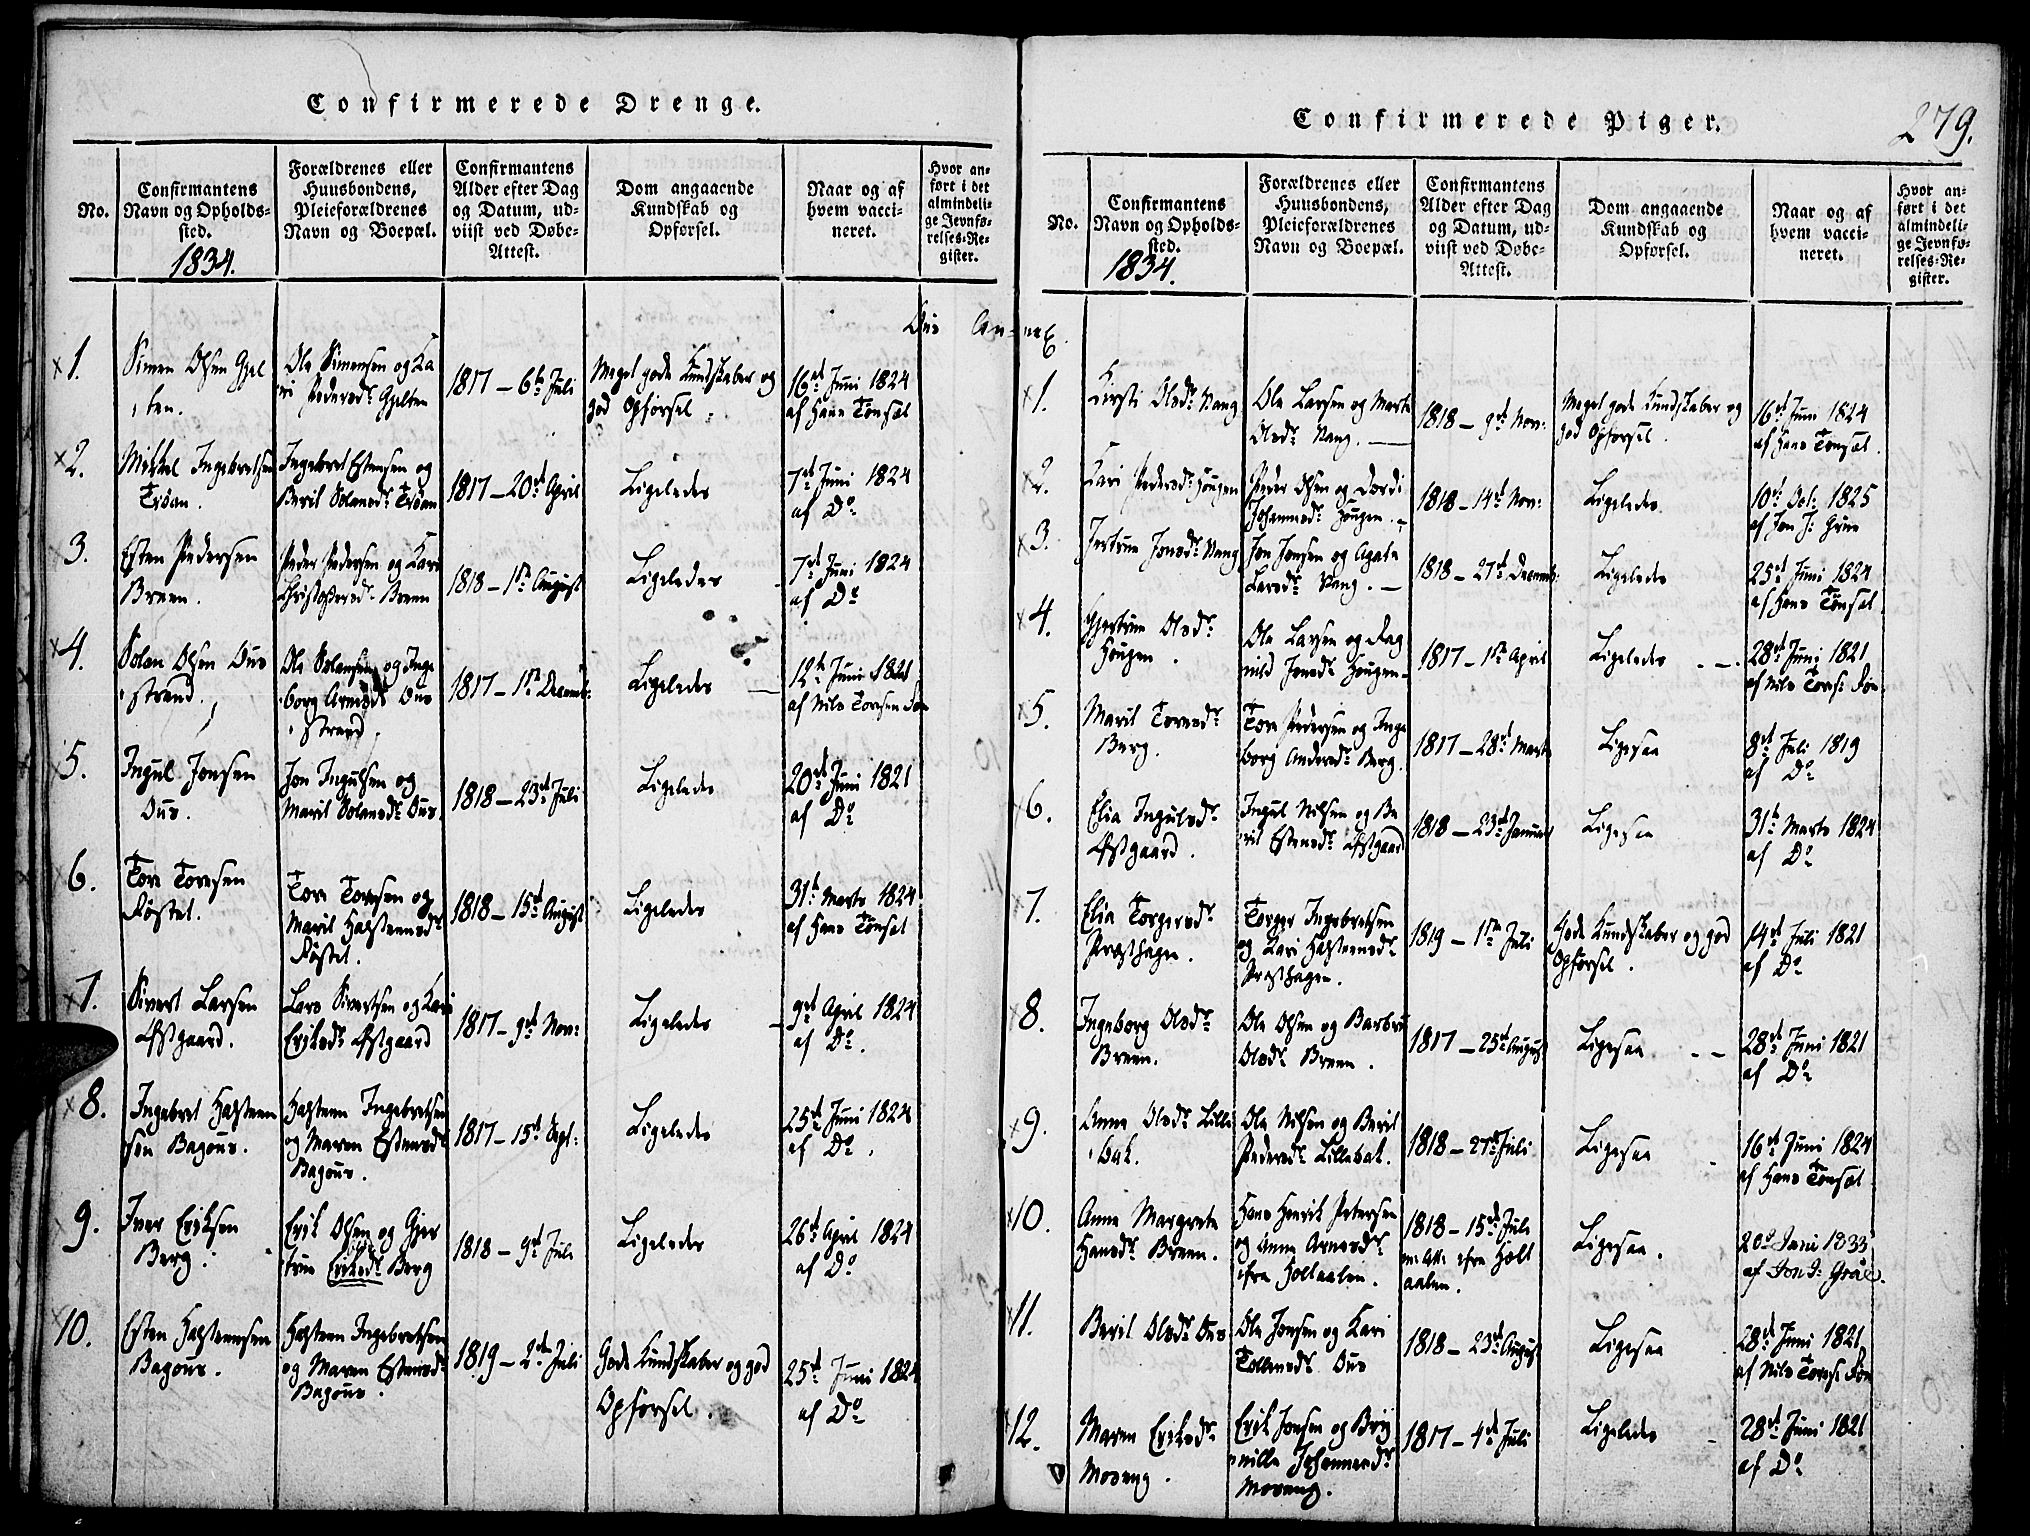 Confirmerede Drenge.
No.
Confirmantens
Navn og Opholds-
sted.
1834.
Forældrenes eller
Huusbondens,
Pleieforældrenes
Navn og Boepæl.
Confirmantens
Alder efter Dag
og Datum, ud-
viist ved Døbe-
Attest.
Dom angaaende
Kundskab og
Opførsel.
Naar og af
hvem vacci-
neret.
Hvor an-
ført i det
almindeli-
ge Jevnfø-
relses-Re-
gister.
Ous Annex.
1.
Simen Olsen Gjel
ten.
Ole Simensen og Ka
ri Pedersd: Gjelten
1817 - 6te Juli
Meget gode Kundskaber og
god Opførsel
16de Juni 1824
af Hans Tønsæt
2.
Mikkel Ingebretsen
Trøan.
Ingebret Estensen og
Beril Solensd: Trøan
1817 - 20de April
Ligeledes
7de Juni 1824
af Do
3.
Esten Pedersen
Breen.
Peder Pedersen og Kari
Christophersd: Breen
1818 - 1ste August
Ligeledes
7de Juni 1824
af Do
4.
Solen Olsen Ous
strand.
Ole Solensen og Inge
borg Arnesd: Ous
strand.
1817 - 1ste Decemb:
Ligeledes
12te Juni 1821
af Nils Toresen
5.
Ingul Jonsen
Ous.
Jon Ingulsen og
Maril Solensd: Ous.
1818 - 23de Juli
Ligeledes
20de Juni 1821
af Do
6.
Tore Toresen
Røstet.
Tore Toresen og
Maril Halsteensd:
Røstet.
1818 - 15de August
Ligeledes
31te Marts 1824
af Hans Tønsæt
7.
Sivert Larsen
Østgaard.
Lars Sivertsen og Kari
Eriksd: Østgaard
1817 - 9de Nov:
Ligeledes
9de April 1824
af Do.
8.
Ingebret Halsteen
sen Bagous.
Halsteen Ingebretsen
og Maren Estensd:
Bagous.
1817 - 15de Sept:
Ligeledes
25de Juni 1824
af Do.
9.
Iver Eriksen
Berg.
Erik Olsen og Gjer
true Eriksd: Berg
1818 - 9de Juli
Ligeledes
26de April 1824
af Do
10.
Esten Halsteensen
Bagous.
Halsteen Ingebretsen
og Maren Estensd:
Bagous.
1819 - 2de Juli
Gode Kundskaber og god
Opførsel.
25de Juni 1824
af Do
Confirmerede Piger.
279.
No.
Confirmantens
Navn og Opholds-
sted.
1834.
Forældrenes eller
Huusbondens,
Pleieforældrenes
Navn og Boepæl.
Confirmantens
Alder efter Dag
og Datum, ud-
viist ved Døbe-
Attest.
Dom angaaende
Kundskab og
Opførsel.
Naar og af
hvem vacci-
neret.
Hvor an-
ført i det
almindeli-
ge Jevnfø-
relses-Re-
gister.
1.
Kirsti Olsd: Vang
Ole Larsen og Marte
Olsd: Vang.
1818 - 9de Nov:
Meget gode Kundskaber og
god Opførsel.
16de Juni 1824
af Hans Tønsæt.
2.
Kari Pedersd: Hougen
Peder Olsen og Dordi
Johannesd: Hougen.
1818 - 14de Nov:
Ligeledes
10de Oct: 1825
af Jon J:
3.
Jertrue Jonsd: Vang
Jon Jonsen og Agata
Larsd: Vang.
1818 - 27de Decemb:
Ligeledes
25de Juni 1824
af Hans Tønsæt.
4.
Gjertrue Olsd:
Hougen.
Ole Larsen og Rag
nild Jonsd: Hougen
1817 - 1ste April
Ligeledes
28de Juni 1821
af Nils Tores:
5.
Maril Toresd:
Berg.
Tore Pedersen og Inge
borg Andersd: Berg.
1817 - 28de Marts
Ligesaa
8de Juli 1819
af Do
6.
Elia Ingulsd:
Østgaard.
Ingul Nilsen og Be
ril Estensd: Østgaard
1818 - 23de Januar
Ligesaa
31te Marts 1824
af Do
7.
Elia Torgersd:
Præsthagen.
Torger Ingebretsen
og Kari Halsteensd:
Præsthagen.
1819 - 1ste Juli
Gode Kundskaber og god
Opførsel.
14de Juli 1821
af Do
8.
Ingeborg Olsd:
Breen.
Ole Olsen og Barbru
Olsd: Breen.
1817 - 25de August
Ligesaa
28de Juni 1821
af Do
9.
Anne Olsd: Lille
bak.
Ole Nilsen og Beril
Pedersd: Lillebak.
1818 - 27de Juli
Ligesaa
16de Juni 1824
af Hans Tønsæt
10.
Anne Margrete
Hansd: Breen.
Hans Henrik Petersen
og Anne Arnesd:
ifra Holtaalen.
1818 - 15de Juli
ifra Holt
aalen.
Ligesaa.
20de Juni 1833
af Jon J:
11.
Beril Olsd: Ous
Ole Jonsen og Kari
Tollensd: Ous
1818 - 23de August
Ligesaa
28de Juni 1821
af Nils Tores:
12.
Maren Eriksd:
Moseng.
Erik Jonsen og Brig
nille Johannesd:
Moseng.
1817 - 4de Juli
Ligeledes
28de Juni 1821
af Do